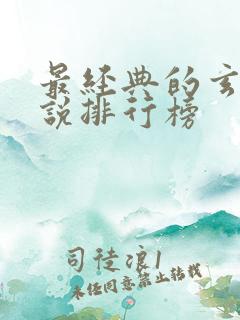 最经典的玄
说排行榜
司徒浪1
未经同意禁止转载